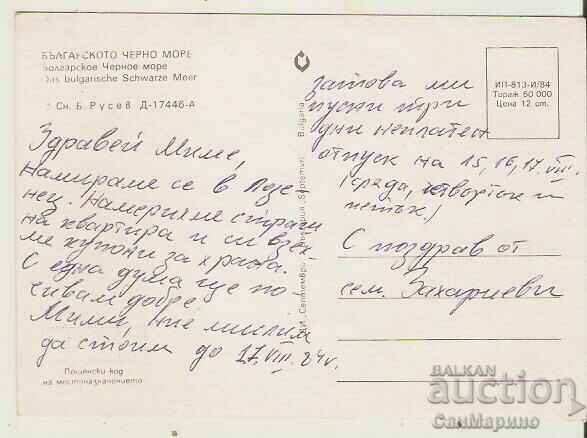 БЪЛГАРСКОТО ЧЕРНО МОРЕ
Болгарское Черное море
Das bulgarische Schwarze Meer
Сн. Б. Русев Д-17446-А
Здравей Миме,
Намираме се в Лозе-
нец. Намерихме страшн
на квартира и си взех-
ме купони за храна.
С една дума ще по-
чивам добре.
Мими, ние мислим
да стоим до 17.VIII.84г.
Пощенски код
на местоназначението
ДИ „Септември“ България „Septemvri“ Bulgaria
ИП-813-И/84
Тираж 50 000
Цена 12 ст.
затова ми
пусни три
дни неплатен
отпуск на 15, 16, 17.VIII.
(сряда, четвъртък и
петък!)
С поздрав от
сем. Захариеви
BALKAN
auction
СанМарино